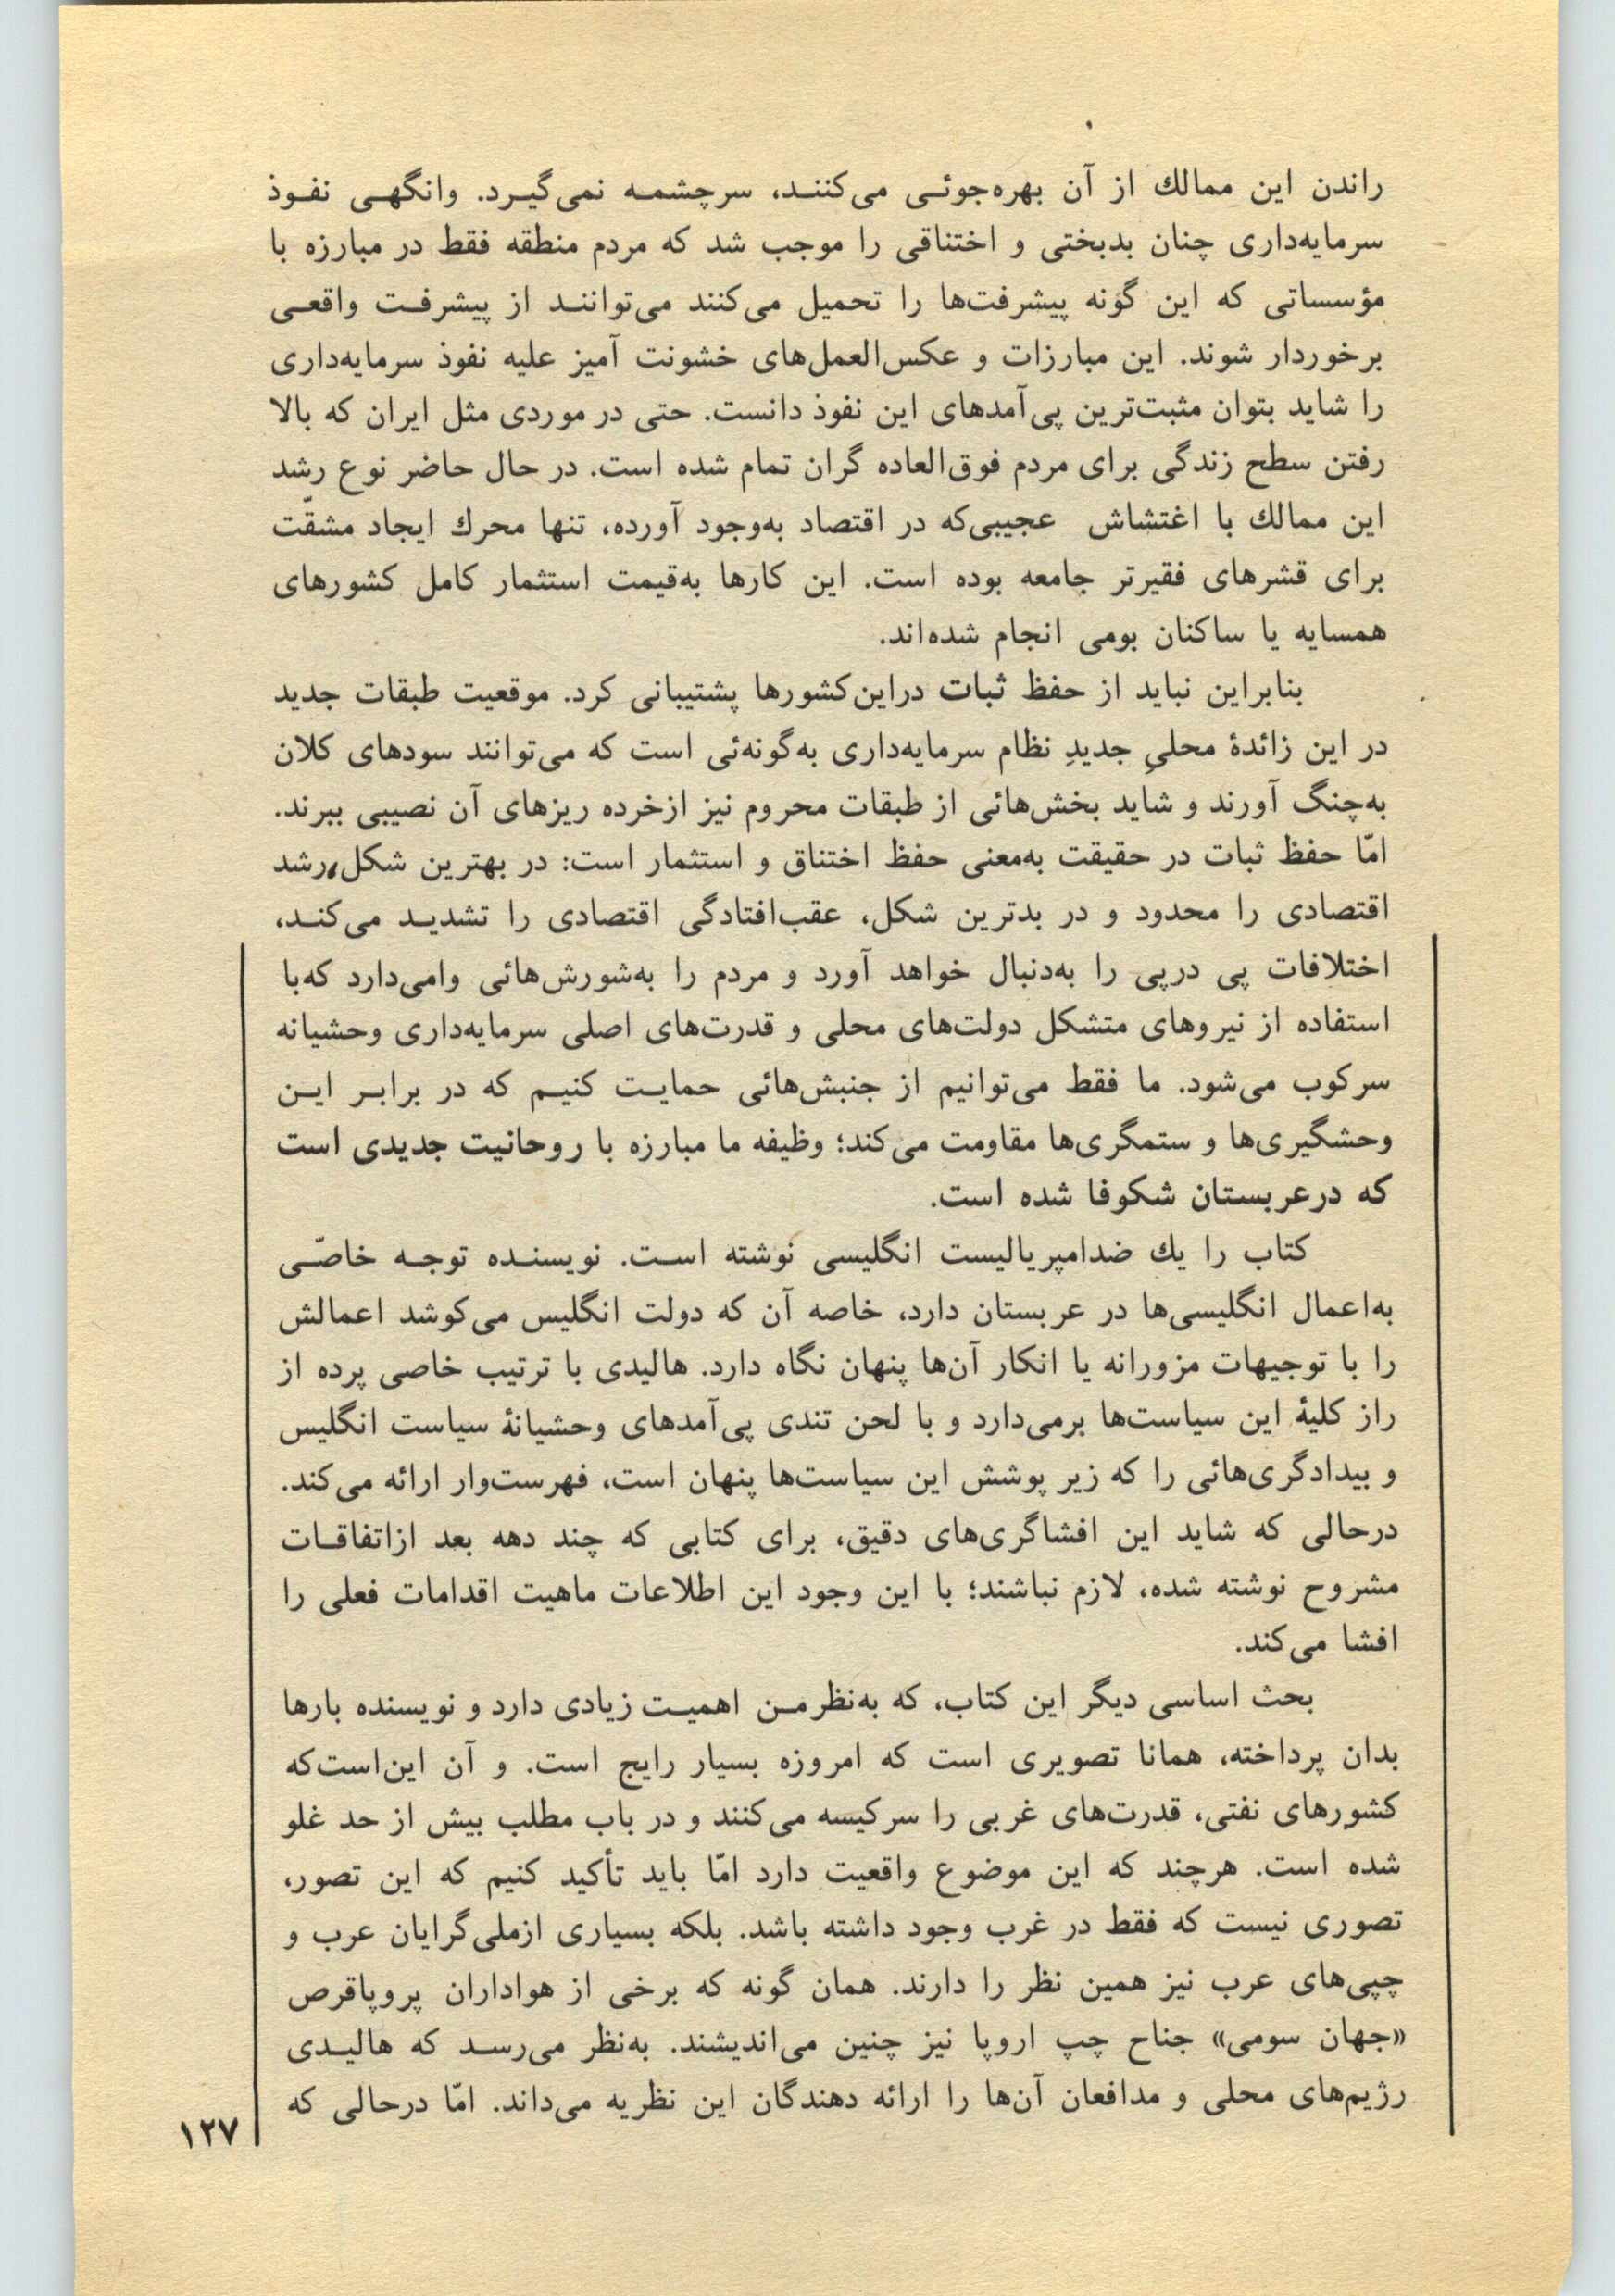 راندن این ممالك از آن بهره‌جوئی می‌کنند، سرچشمه نمی‌گیرد. وانگهی نفوذ
سرمایه‌داری چنان بدبختی و اختناقی را موجب شد که مردم منطقه فقط در مبارزه با
مؤسساتی که این گونه پیشرفت‌ها را تحمیل می‌کنند می‌توانند از پیشرفت واقعی
برخوردار شوند. این مبارزات و عکس‌العمل‌های خشونت آمیز علیه نفوذ سرمایه‌داری
را شاید بتوان مثبت‌ترین پی‌آمدهای این نفوذ دانست. حتی در موردی مثل ایران که بالا
رفتن سطح زندگی برای مردم فوق‌العاده گران تمام شده است. در حال حاضر نوع رشد
این ممالك با اغتشاش عجیبی‌که در اقتصاد به‌وجود آورده، تنها محرك ایجاد مشقّت
برای قشرهای فقیرتر جامعه بوده است. این کارها به‌قیمت استثمار کامل کشورهای
همسایه یا ساکنان بومی انجام شده‌اند.
بنابراین نباید از حفظ ثبات دراین‌کشورها پشتیبانی کرد. موقعیت طبقات جدید
در این زائدهٔ محلیِ جدیدِ نظام سرمایه‌داری به‌گونه‌ئی است که می‌توانند سودهای کلان
به‌چنگ آورند و شاید بخش‌هائی از طبقات محروم نیز ازخرده ریزهای آن نصیبی ببرند.
امّا حفظ ثبات در حقیقت به‌معنی حفظ اختناق و استثمار است: در بهترین شکل، رشد
اقتصادی را محدود و در بدترین شکل، عقب‌افتادگی اقتصادی را تشدید می‌کند،
اختلافات پی درپی را به‌دنبال خواهد آورد و مردم را به‌شورش‌هائی وامی‌دارد که‌با
استفاده از نیروهای متشکل دولت‌های محلی و قدرت‌های اصلی سرمایه‌داری وحشیانه
سرکوب می‌شود. ما فقط می‌توانیم از جنبش‌هائی حمایت کنیم که در برابر این
وحشگیری‌ها و ستمگری‌ها مقاومت می‌کند؛ وظیفه ما مبارزه با روحانیت جدیدی است
که درعربستان شکوفا شده است.
کتاب را یك ضدامپریالیست انگلیسی نوشته است. نویسنده توجه خاصّی
به‌اعمال انگلیسی‌ها در عربستان دارد، خاصه آن که دولت انگلیس می‌کوشد اعمالش
را با توجیهات مزورانه یا انکار آن‌ها پنهان نگاه دارد. هالیدی با ترتیب خاصی پرده از
راز کلیهٔ این سیاست‌ها برمی‌دارد و با لحن تندی پی‌آمدهای وحشیانهٔ سیاست انگلیس
و بیدادگری‌هائی را که زیر پوشش این سیاست‌ها پنهان است، فهرست‌وار ارائه می‌کند.
درحالی که شاید این افشاگری‌های دقیق، برای کتابی که چند دهه بعد ازاتفاقات
مشروح نوشته شده، لازم نباشند؛ با این وجود این اطلاعات ماهیت اقدامات فعلی را
افشا می‌کند.
بحث اساسی دیگر این کتاب، که به‌نظرمن اهمیت زیادی دارد و نویسنده بارها
بدان پرداخته، همانا تصویری است که امروزه بسیار رایج است. و آن این‌است‌که
کشورهای نفتی، قدرت‌های غربی را سرکیسه می‌کنند و در باب مطلب بیش از حد غلو
شده است. هرچند که این موضوع واقعیت دارد امّا باید تأکید کنیم که این تصور،
تصوری نیست که فقط در غرب وجود داشته باشد. بلکه بسیاری ازملی‌گرایان عرب و
چپی‌های عرب نیز همین نظر را دارند. همان گونه که برخی از هواداران پروپاقرص
«جهان سومی» جناح چپ اروپا نیز چنین می‌اندیشند. به‌نظر می‌رسد که هالیدی
رژیم‌های محلی و مدافعان آن‌ها را ارائه دهندگان این نظریه می‌داند. امّا درحالی که
۱۲۷